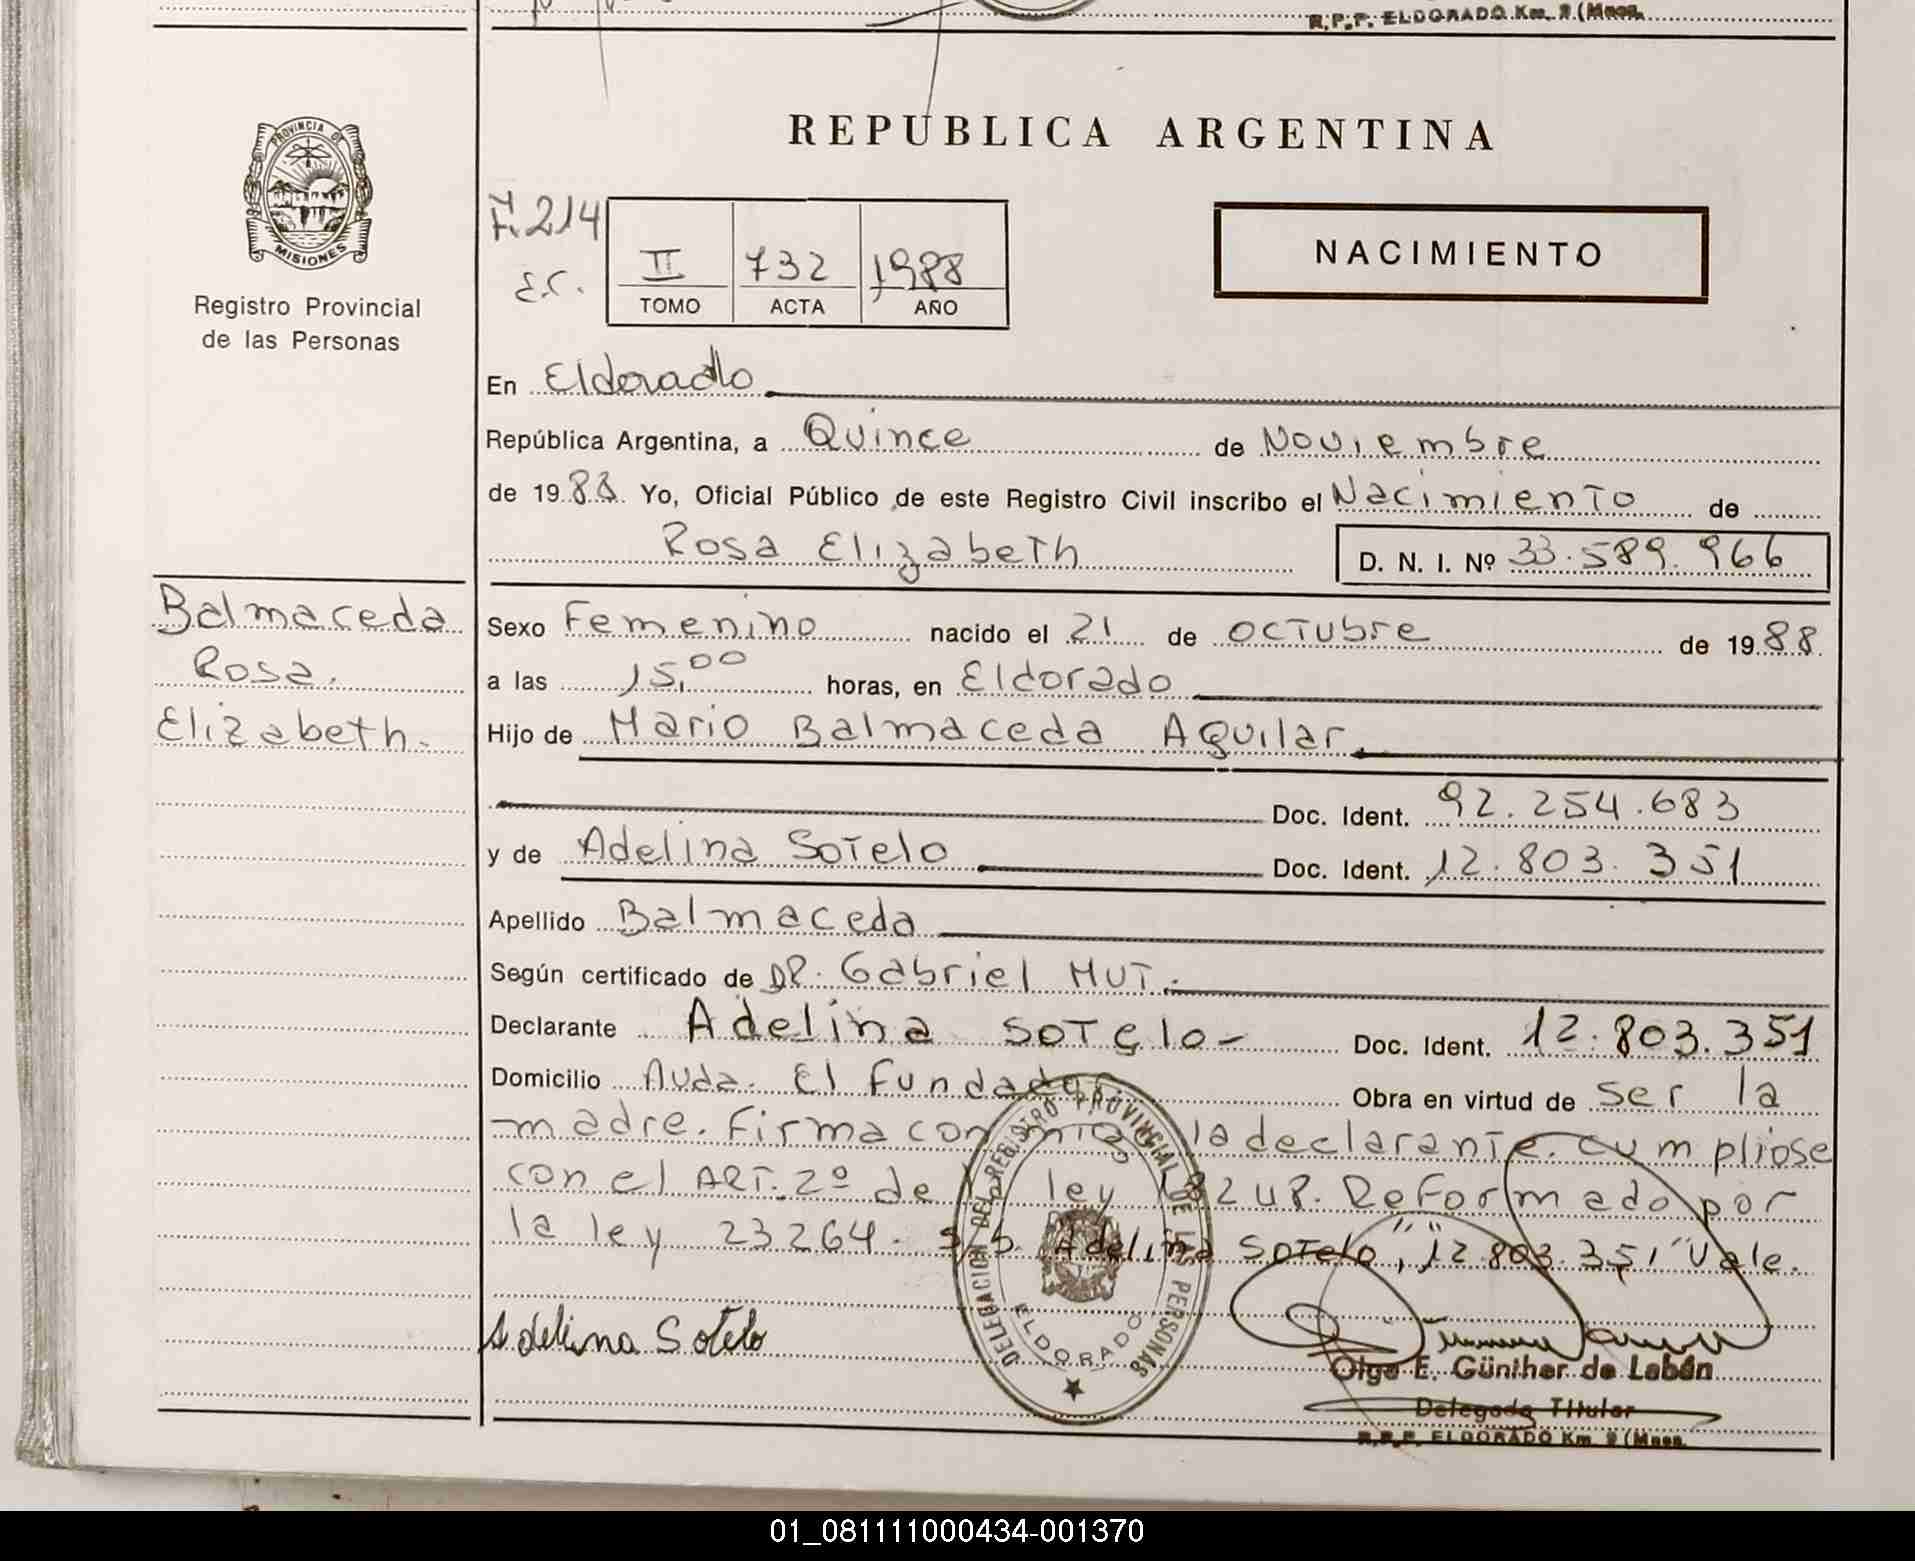 R.P.P. ELDORADO Km. 9 (Mnes.
REPUBLICA ARGENTINA
PROVINCIA DE
MISIONES
Registro Provincial
de las Personas
F. 214
E.C.
II 732 1988
TOMO ACTA AÑO
NACIMIENTO
En Eldorado
República Argentina, a Quince de Noviembre
de 1988 Yo, Oficial Público de este Registro Civil inscribo el Nacimiento de
Rosa Elizabeth D. N. I. Nº 33.589.966
Balmaceda
Rosa.
Elizabeth.
Sexo Femenino nacido el 21 de octubre de 1988
a las 15,00 horas, en Eldorado
Hijo de Mario Balmaceda Aquilar
Doc. Ident. 92.254.683
y de Adelina Sotelo Doc. Ident. 12.803.351
Apellido Balmaceda
Según certificado de DR. Gabriel MUT.
Declarante Adelina Sotelo- Doc. Ident. 12.803.351
Domicilio Avda. El Fundador Obra en virtud de ser la
madre. Firma conmigo la declarante. cumpliose
con el ART. 2º de la ley 18248. Reformado por
la ley 23264. s/b. Adelina Sotelo, "12.803.351" Vale.
Adelina Sotelo
DELEGACION DEL REGISTRO PROVINCIAL DE LAS PERSONAS
ELDORADO
Olga E. Günther de Labán
Delegada Titular
R.P.P. ELDORADO Km. 9 (Mnes.
01_081111000434-001370